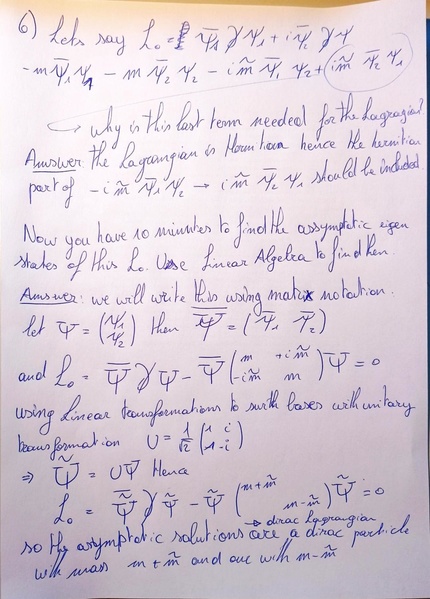 6) Lets say L₀ = ψ̄₁ ∂̸ ψ₁ + i ψ̄₂ ∂̸ ψ
-m ψ̄₁ ψ₁ - m ψ̄₂ ψ₂ - i m̃ ψ̄₁ ψ₂ + i m̃ ψ̄₂ ψ₁
↪ why is this last term needed for the Lagrangian?
Answer: the Lagrangian is Hermitian hence the hermitian
part of -i m̃ ψ̄₁ ψ₂ → i m̃ ψ̄₂ ψ₁ should be included.
Now you have 10 minutes to find the assymptotic eigen
states of this L₀. Use Linear Algebra to find then.
Answer: we will write this using matrix notation.
let Ψ = (ψ₁ ψ₂) then Ψ̄ = (ψ̄₁ ψ̄₂)
and L₀ = Ψ̄ ∂̸ Ψ - Ψ̄ (m +im̃ -im̃ m) Ψ = 0
using Linear transformations to bases with unitary
transformation U = 1/√2 (1 i 1 -i)
⇒ Ψ̃ = UΨ Hence
L₀ = Ψ̃̄ ∂̸ Ψ̃ - Ψ̃̄ (m+m̃ m-m̃) Ψ̃ = 0
→ dirac Lagrangian
so the asymptotic solutions are a dirac particle
with mass m+m̃ and one with m-m̃